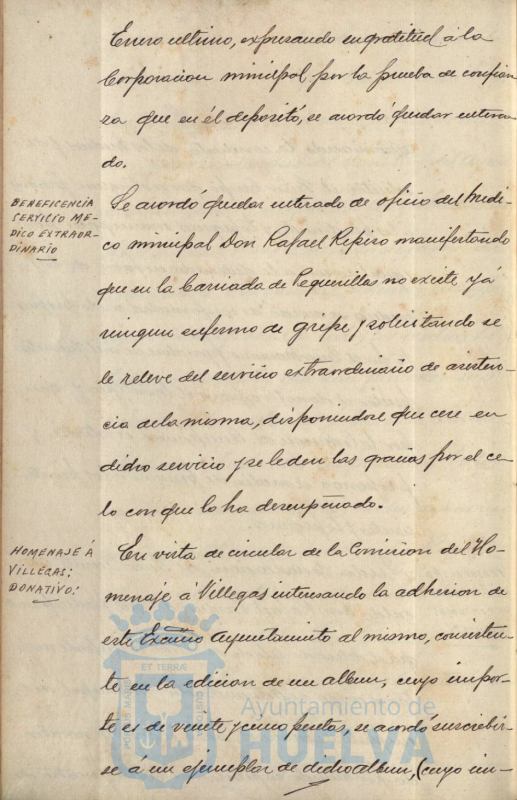 Enero ultimo, expresando su gratitud á la
Corporacion minicipal por la prueba de confian
za que en él depositó, se acordó quedar entera
do.
BENEFICENCIA
SERVICIO ME-
DICO EXTRAOR-
DINARIO
Se acordó quedar enterado de oficio del Medi-
co minicipal Don Rafael Repiso manifestando
que en la barriada de Peguerillas no existe yá
ningun enfermo de gripe y solicitando se
le releve del servicio extraordinario de asisten-
cia de la misma, disponiendose que cese en
dicho servicio y se le den las gracias por el ce-
lo con que lo ha desempeñado.
HOMENAJE Á
VILLEGAS:
DONATIVO:
En vista de circular de la Comision del Ho-
menaje á Villegas interesando la adhesion de
este Excmo Ayuntamiento al mismo, consisten-
te en la edicion de un album, cuyo impor-
te es de veinte y cinco pesetas, se acordó suscribir-
se á un ejemplar de dicho album, (cuyo im-
ET TERRÆ
Ayuntamiento de
HUELVA